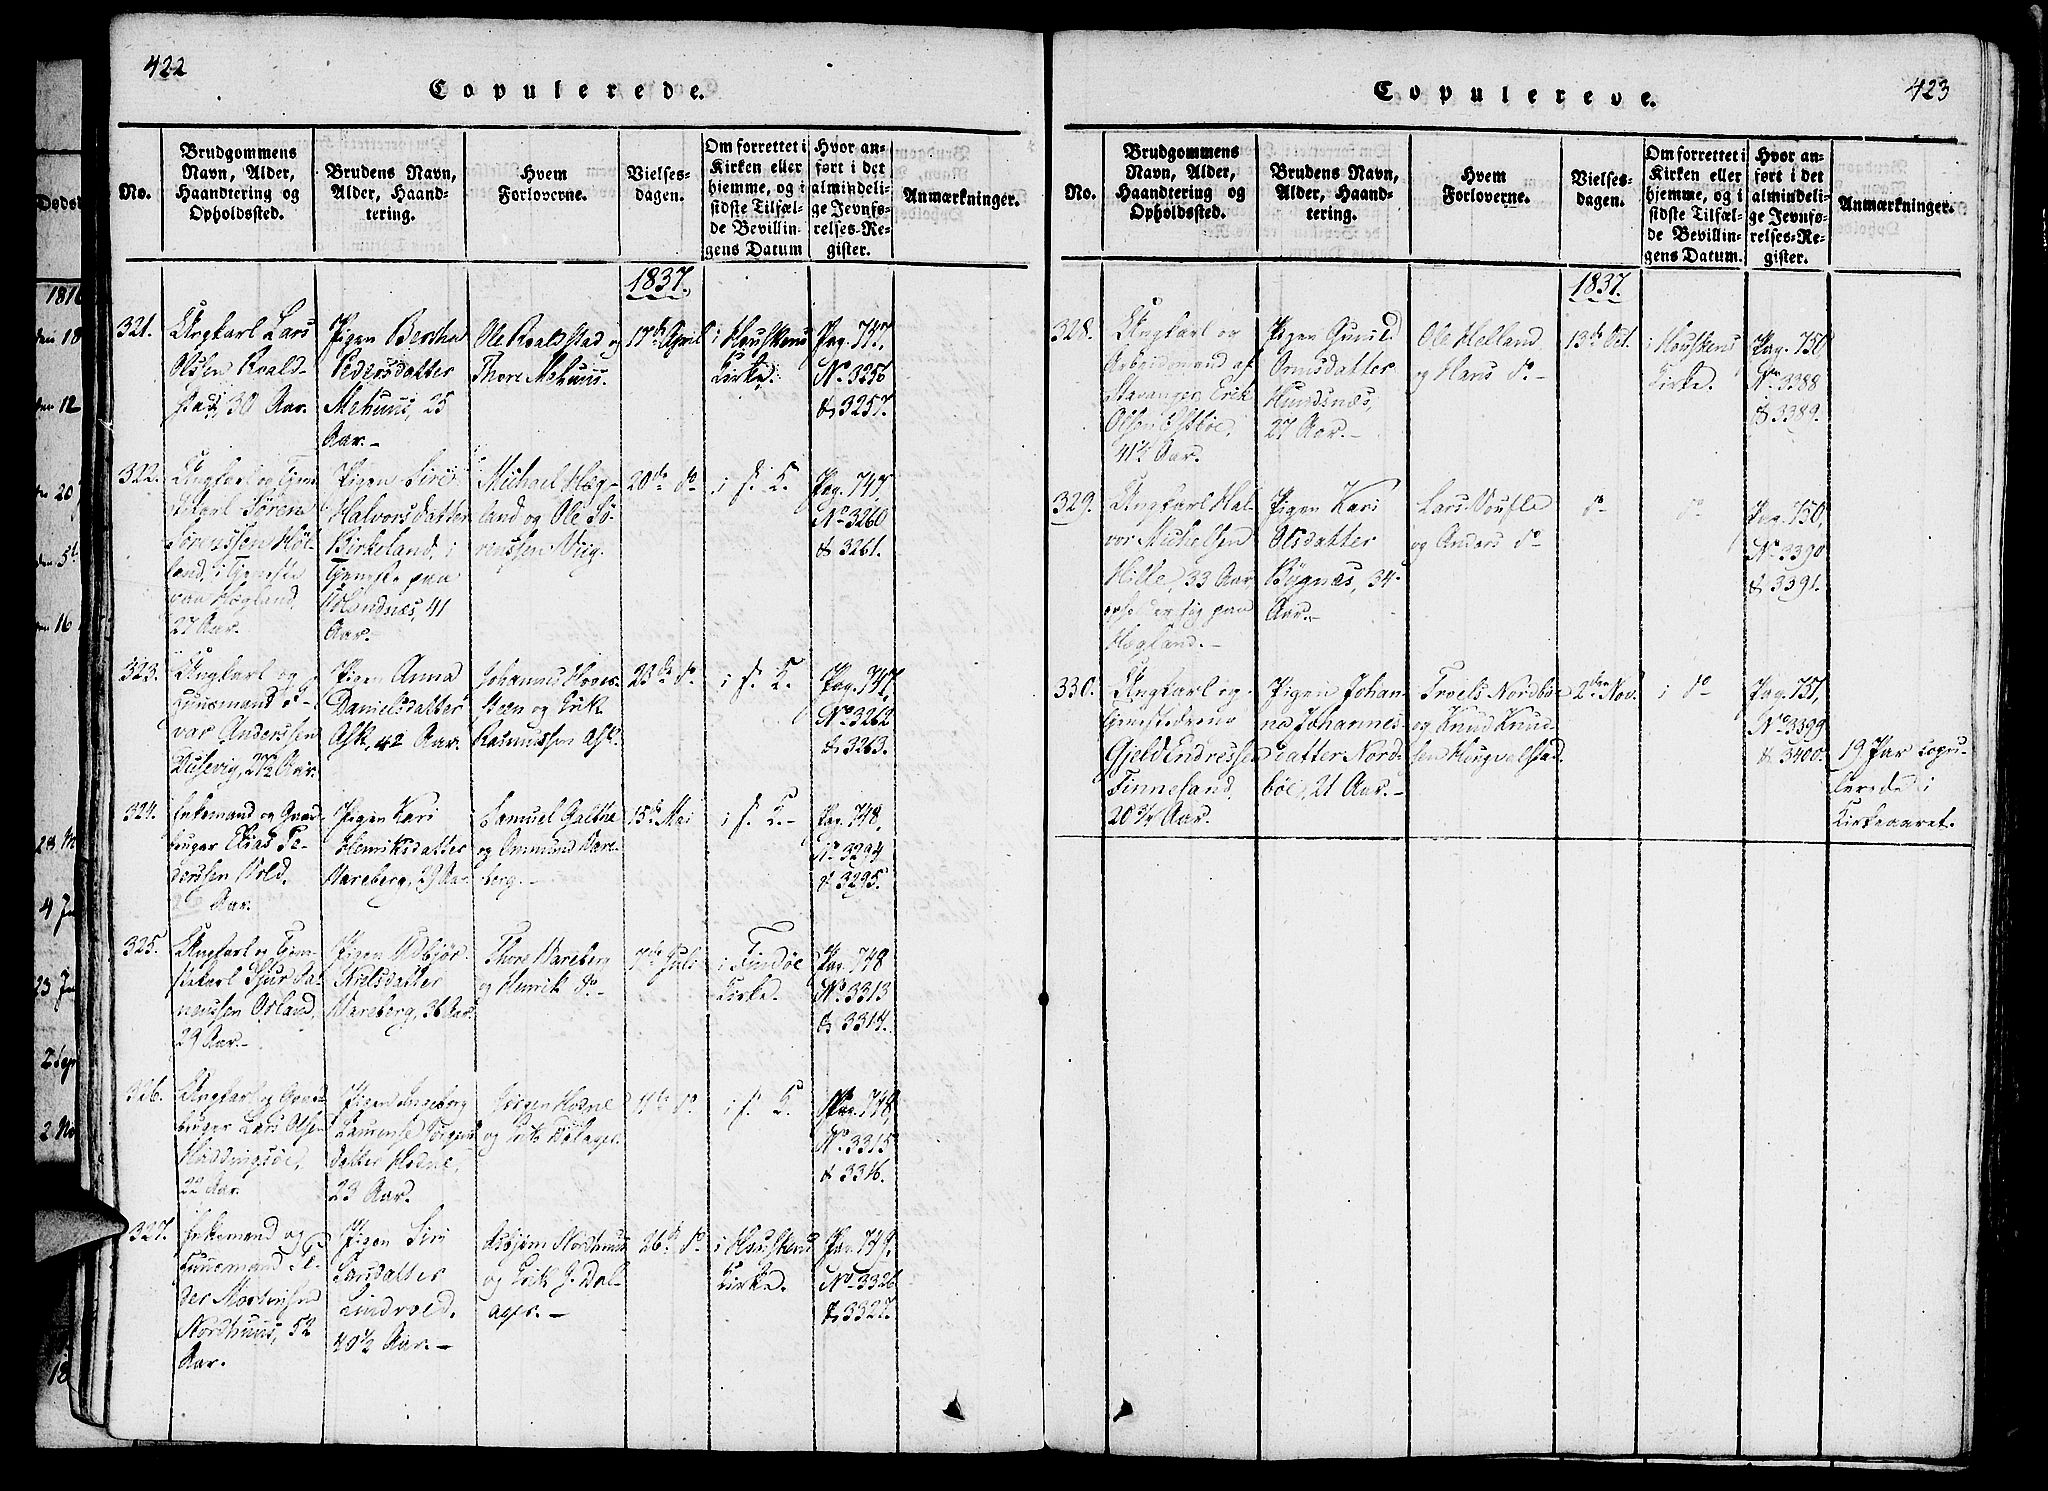 422
Copulerede.
No.
Brudgommens
Navn, Alder,
Haandtering og
Opholdssted.
Brudens Navn,
Alder, Haand-
tering.
Hvem
Forloverne.
Vielses-
dagen.
Om forrettet i
Kirken eller
hjemme, og i
sidste Tilfæl-
de Bevillin-
gens Datum
Hvor an-
ført i det
almindeli-
ge Jevnfø-
relses-Re-
gister.
Anmærkninger.
1837.
321.
Ungkarl Lars
Olsen Roald-
stad, 30 Aar.
Pigen Bertha
Pedersdatter
Mehuus, 25
Aar.-
Ole Roaldstad og
Thore Mehuus.
17de April
i Hauskens
Kirke.
Pag. 747,
No 3256
& 3257.
322.
Ungkarl og Tjene-
stekarl Sören
Sörenssen
land, i Tjeneste
paa Hægland,
27 Aar.
Pigen Siri
Halvorsdatter
Birkeland, i
Tjeneste paa
41
Aar.-
Michael Hæg-
land og Ole Sö-
renssen Viig.
20de do
i s. K.
Pag. 747,
No 3260
& 3261.
323.
Ungkarl og
Huusmand
var Anderssen
27½ Aar.
Pigen Anna
Danielsdatter
Ask, 42 Aar.
Johannes
steen og Erik
Rasmussen Ask.
23de do
i s. K.
Pag. 747,
No 3262
& 3263.
324.
Enkemand og Gaard-
bruger Elias Pe-
derssen Vold,
Aar.
Pigen Kari
Henriksdatter
Vareberg, 29 Aar
Samuel Galtne
og Ommund Vare-
berg.-
15de Mai
i s. K.-
Pag. 748,
No 3294
& 3295.
325.
Ungkarl og Tjene-
stekarl Sjur
29 Aar.-
Pigen Asbjör
Nielsdatter
Vareberg, 36 Aar.
Thore Vareberg
og Henrik do-
7de Juli
i Findöe
Kirke.
Pag. 748
No 3313
& 3314.
326.
Ungkarl og Gaard-
bruger Lars Olsen
22 Aar.
Pigen Ingeborg
Laurense Jörgens-
datter Hodne,
23 Aar.
Jörgen Hodne
og Erik Dalager.
do
i s. K.
Pag. 748,
No 3315
& 3316.
327.
Enkemand og
Huusmand Pe-
der
Nordhuus, 52
Aar.
Pigen Siri
Larsdatter
Lindvold,
40½ Aar.-
Asbjörn Nordhuus
og Erik J. Dal-
ager.-
26de do
i Hauskens
Kirke.
Pag. 749.
No 3326
& 3327.
423
Copulerede.
No.
Brudgommens
Navn, Alder,
Haandtering og
Opholdssted.
Brudens Navn,
Alder, Haand-
tering.
Hvem
Forloverne.
Vielses-
dagen.
Om forrettet i
Kirken eller
hjemme, og i
sidste Tilfæl-
de Bevillin-
gens Datum.
Hvor an-
ført i det
almindeli-
ge Jevnfø-
relses-Re-
gister.
Anmærkninger.
1837.
328.
Ungkarl og
Arbeidsmand af
Stavanger, Erik
Olsen Östböe,
41½ Aar.
Pigen Gunild
Ormsdatter
Hundsnæs,
27 Aar.-
Ole Helland
og Hans do-
13de Oct.
i Hauskens
Kirke.
Pag. 750
No 3388
& 3389.
329.
Ungkarl Hal-
vor Michelsen
Hille, 33 Aar
opholder sig paa
Hægland.-
Pigen Kari
Olsdatter
Bygnæs, 34
Aar.-
Lars
og Anders do
do
do
Pag. 750,
No 3390
& 3391.
330.
Ungkarl og
Tjenestedreng
Gjeld Endressen
Finnesand,
20¾ Aar.
Pigen Johan-
na Johannes-
datter Nord-
böe, 21 Aar.-
Troels Nordböe
og Knud Knud-
sen
2den Nov.
i do
Pag. 751,
No 3399
& 3400.
19 Par copu-
lerede i
Kirkeaaret.